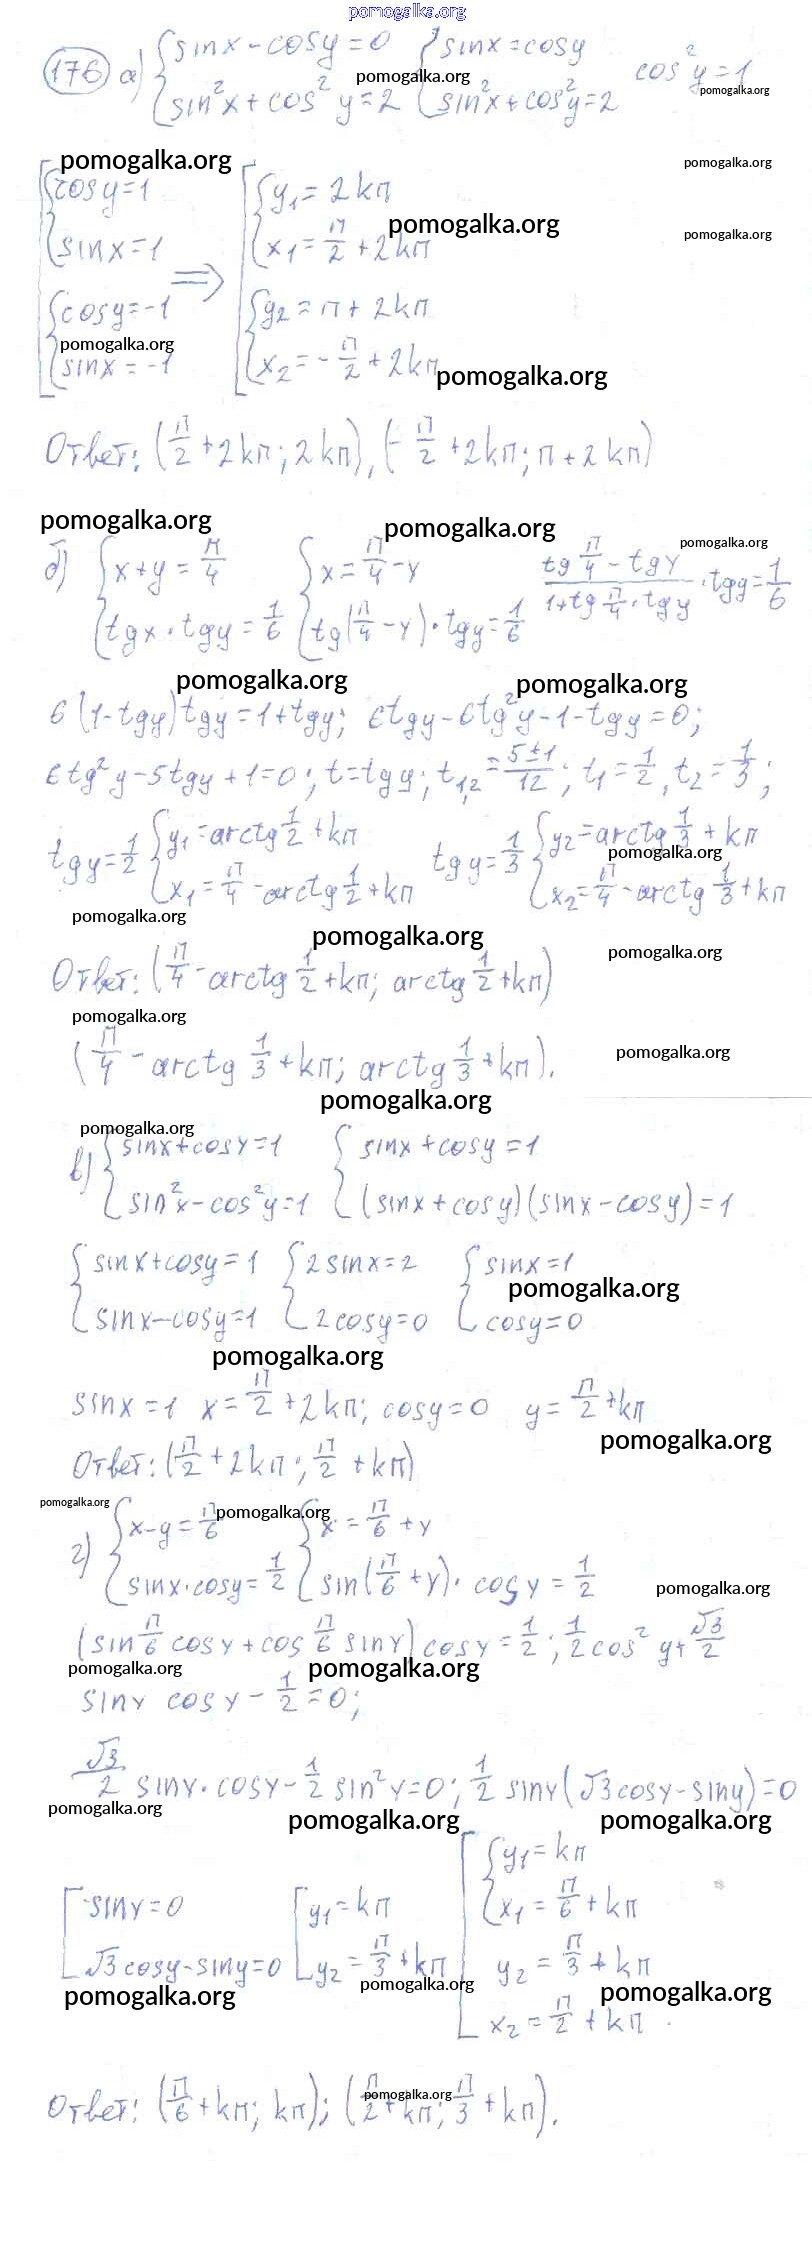 pomogalka.org
176 а) {sinx - cosy = 0 {sinx = cosy
{sin²x + cos²y = 2 {sin²x + cos²y = 2 cos²y = 1
pomogalka.org
pomogalka.org
pomogalka.org pomogalka.org
[{cosy = 1 [{y₁ = 2kπ
{sinx = 1 {x₁ = π/2 + 2kπ
pomogalka.org pomogalka.org
=>
{cosy = -1 {y₂ = π + 2kπ
{sinx = -1 {x₂ = -π/2 + 2kπ
pomogalka.org pomogalka.org
Ответ: (π/2 + 2kπ; 2kπ), (-π/2 + 2kπ; π + 2kπ)
pomogalka.org pomogalka.org pomogalka.org
б) {x + y = π/4 {x = π/4 - y (tg π/4 - tgy)/(1 + tg π/4 · tgy) · tgy = 1/6
{tgx · tgy = 1/6 {tg(π/4 - y) · tgy = 1/6
pomogalka.org pomogalka.org
6(1 - tgy)tgy = 1 + tgy; 6tgy - 6tg²y - 1 - tgy = 0;
6tg²y - 5tgy + 1 = 0; t = tgy; t₁,₂ = (5±1)/12; t₁ = 1/2, t₂ = 1/3;
tgy = 1/2 {y₁ = arctg 1/2 + kπ tgy = 1/3 {y₂ = arctg 1/3 + kπ
{x₁ = π/4 - arctg 1/2 + kπ {x₂ = π/4 - arctg 1/3 + kπ
pomogalka.org
pomogalka.org pomogalka.org
pomogalka.org
Ответ: (π/4 - arctg 1/2 + kπ; arctg 1/2 + kπ)
pomogalka.org
(π/4 - arctg 1/3 + kπ; arctg 1/3 + kπ).
pomogalka.org
pomogalka.org
pomogalka.org
в) {sinx + cosy = 1 {sinx + cosy = 1
{sin²x - cos²y = 1 {(sinx + cosy)(sinx - cosy) = 1
{sinx + cosy = 1 {2sinx = 2 {sinx = 1
{sinx - cosy = 1 {2cosy = 0 {cosy = 0
pomogalka.org
pomogalka.org
sinx = 1 x = π/2 + 2kπ; cosy = 0 y = π/2 + kπ
pomogalka.org
Ответ: (π/2 + 2kπ; π/2 + kπ)
pomogalka.org pomogalka.org
г) {x - y = π/6 {x = π/6 + y
{sinx · cosy = 1/2 {sin(π/6 + y) · cosy = 1/2
pomogalka.org
(sin π/6 cosy + cos π/6 siny) cosy = 1/2; 1/2 cos²y + √3/2
pomogalka.org pomogalka.org
siny cosy - 1/2 = 0;
√3/2 siny · cosy - 1/2 sin²y = 0; 1/2 siny(√3cosy - siny) = 0
pomogalka.org pomogalka.org pomogalka.org
[siny = 0 [y₁ = kπ [{y₁ = kπ
{x₁ = π/6 + kπ
[√3cosy - siny = 0 [y₂ = π/3 + kπ y₂ = π/3 + kπ
x₂ = π/2 + kπ
pomogalka.org pomogalka.org pomogalka.org
Ответ: (π/6 + kπ; kπ); (π/2 + kπ; π/3 + kπ).
pomogalka.org